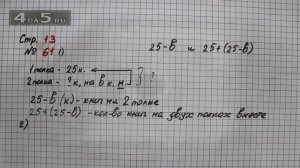 4da5.ru
Стр. 13
№ 61 1)
25-в и 25+(25-в)
1 полка - 25к.
2 полка - ?к., на в к. м.
?
25-в (к) - книг на 2 полке
25+(25-в) - кол-во книг на двух полках вместе
2)